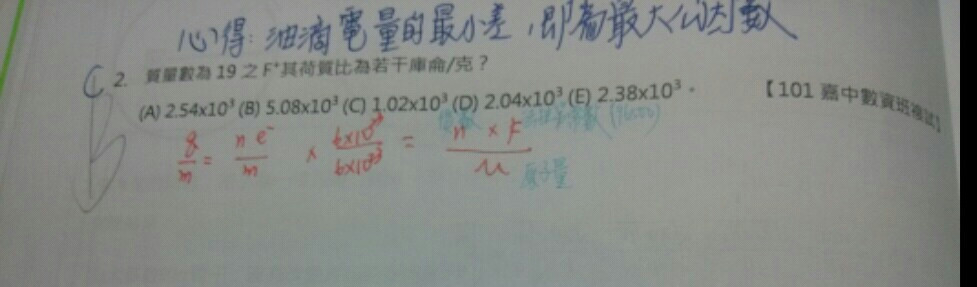 心得:油滴電量的最小差,即為最大公因數
C 2. 質量數為 19 之 F⁺其荷質比為若干庫侖/克?
(A) 2.54x10³ (B) 5.08x10³ (C) 1.02x10³ (D) 2.04x10³ (E) 2.38x10³。
【101 嘉中數資班複試】
q/m = n e⁻/m × 6×10²³/6×10²³ = n × F/M
(96500)
原子量